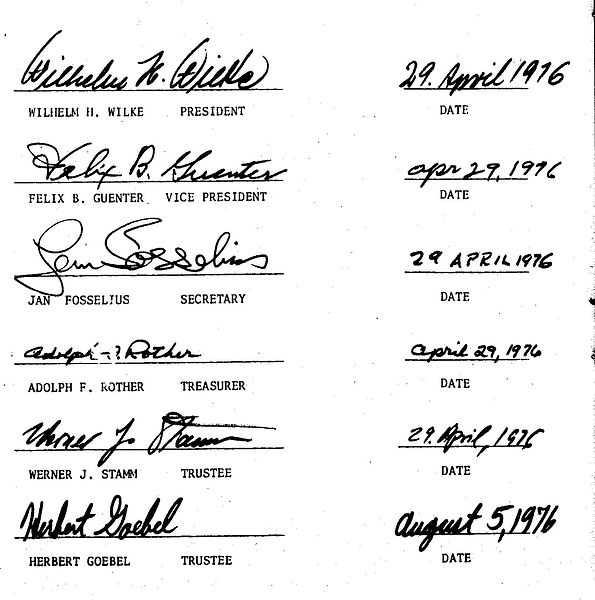 Wilhelm H. Wilke 29. April 1976
WILHELM H. WILKE PRESIDENT DATE
Felix B. Guenter Apr 29, 1976
FELIX B. GUENTER VICE PRESIDENT DATE
Jan Fosselius 29 APRIL 1976
JAN FOSSELIUS SECRETARY DATE
Adolph F. Rother April 29, 1976
ADOLPH F. ROTHER TREASURER DATE
Werner J. Stamm 29. April, 1976
WERNER J. STAMM TRUSTEE DATE
Herbert Goebel August 5, 1976
HERBERT GOEBEL TRUSTEE DATE